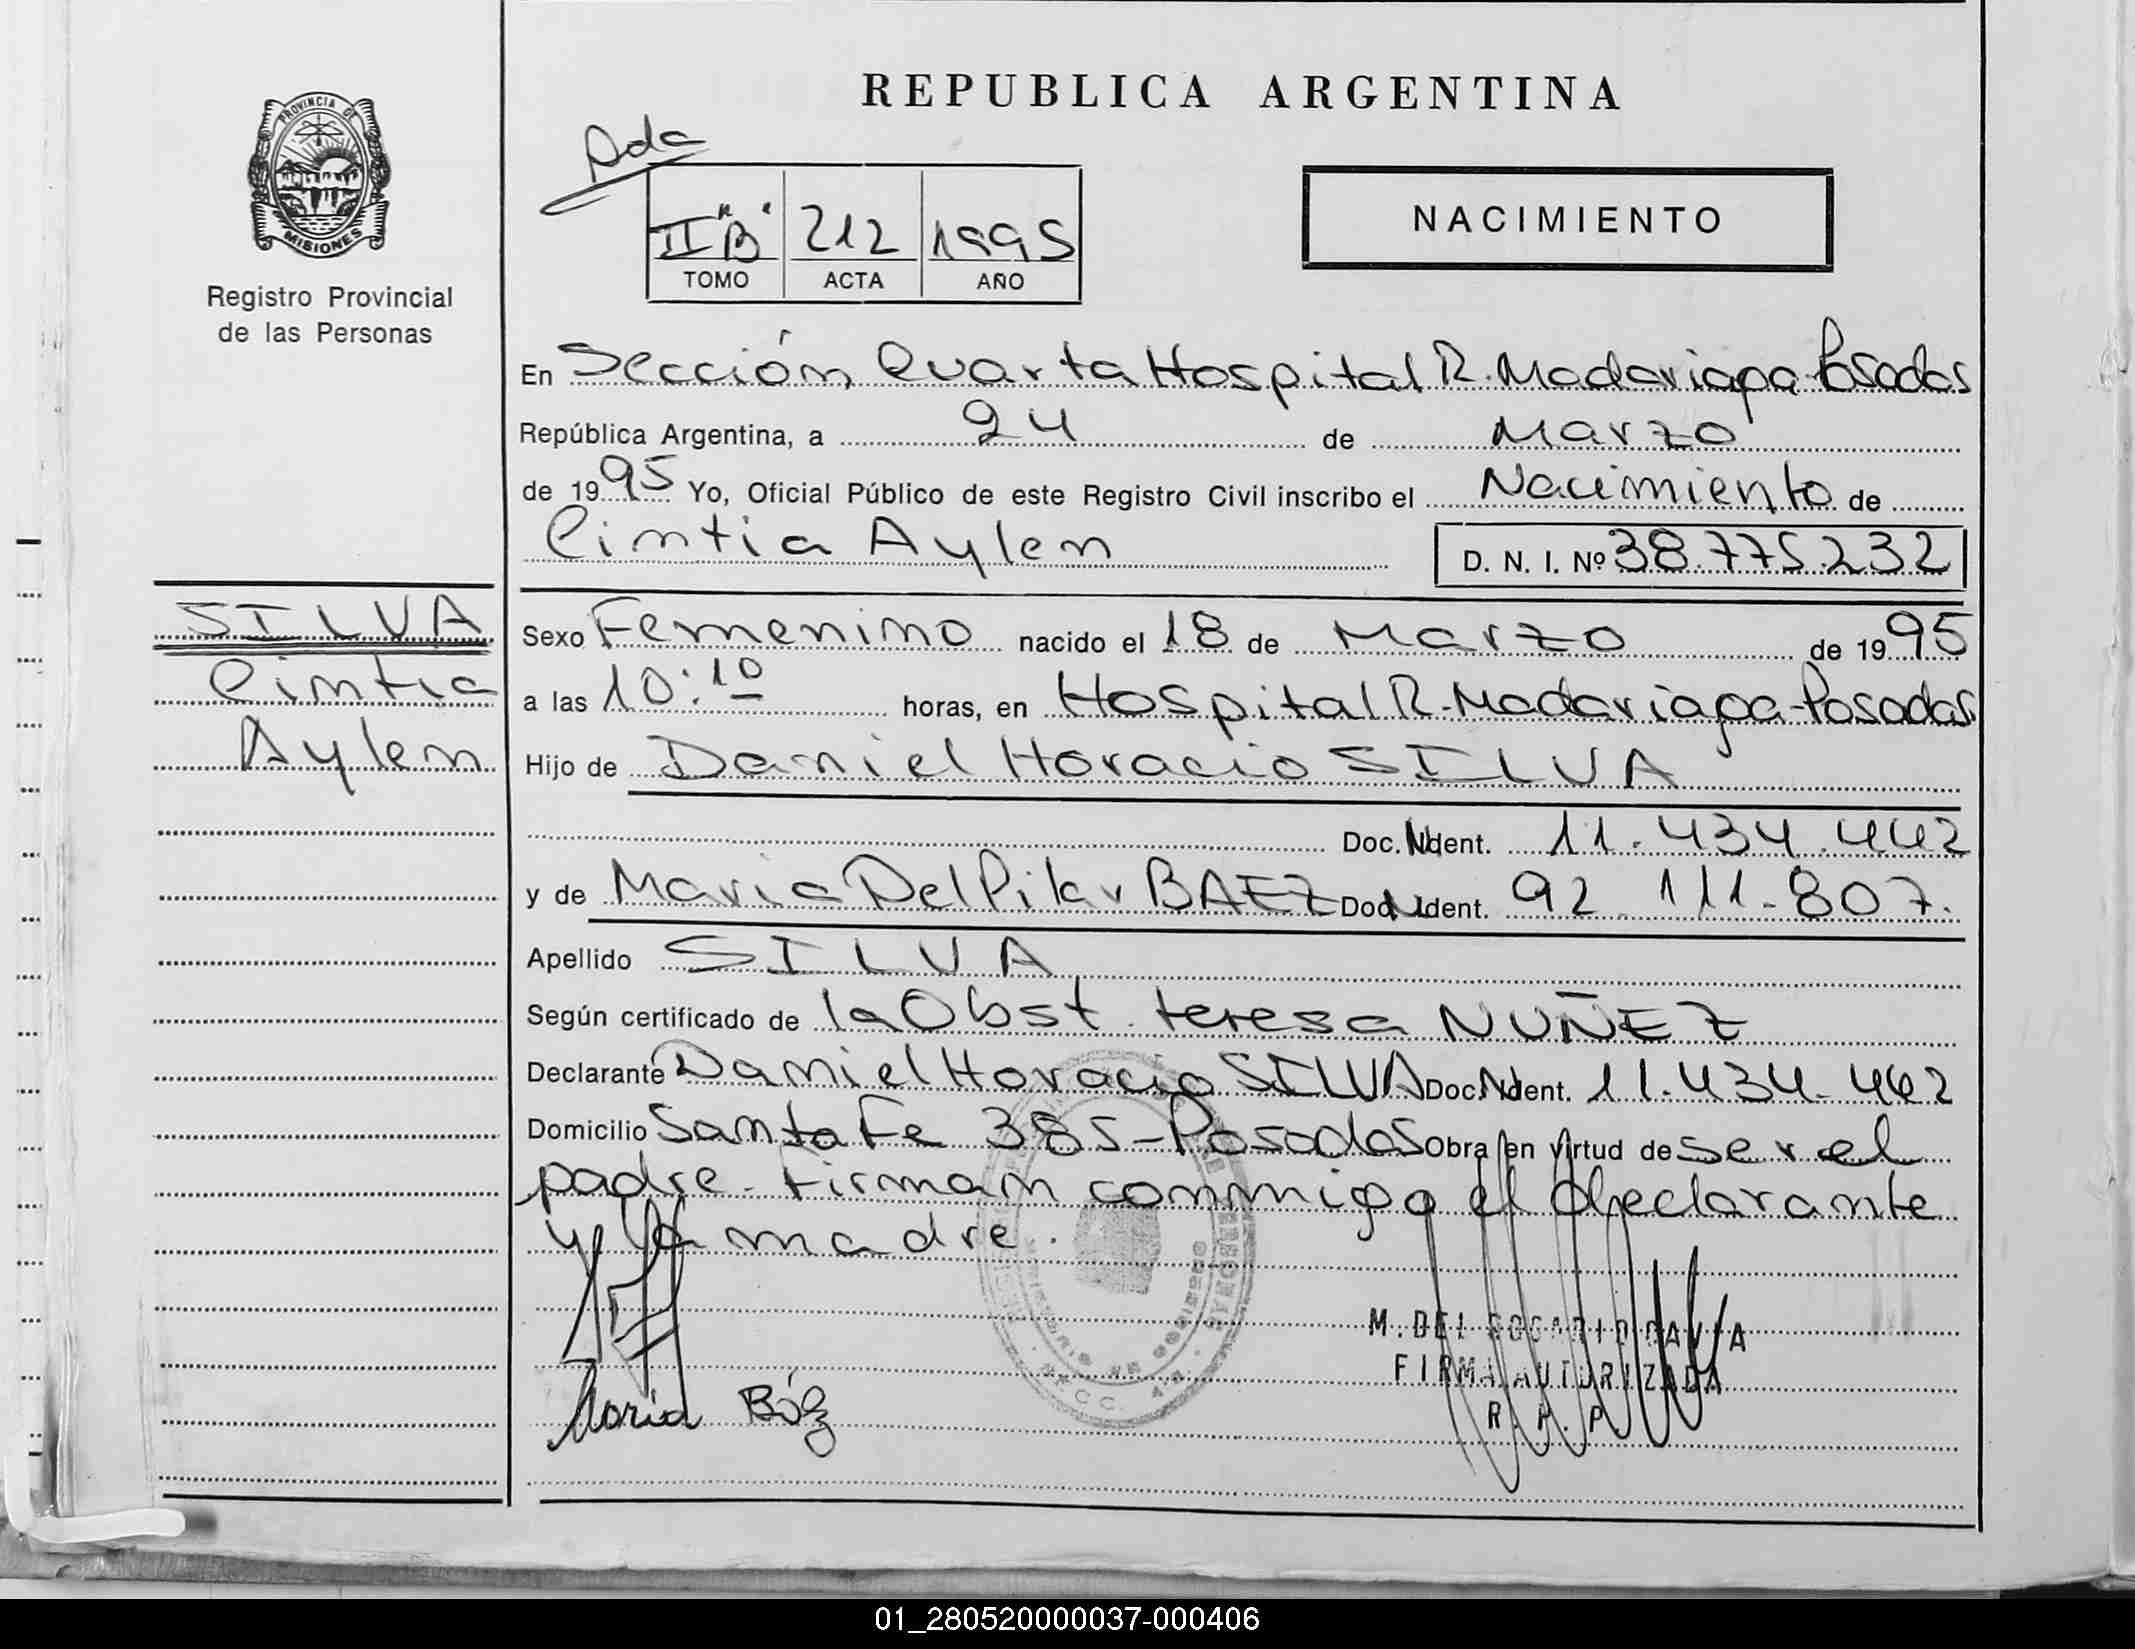 REPUBLICA ARGENTINA
PROVINCIA DE
MISIONES
Registro Provincial
de las Personas
Ada
II "B" 212 1995
TOMO ACTA AÑO
NACIMIENTO
En Sección Cuarta Hospital R. Madariaga-Posadas
República Argentina, a 24 de Marzo
de 1995 Yo, Oficial Público de este Registro Civil inscribo el Nacimiento de
Cintia Aylen D. N. I. Nº 38.775.232
SILVA
Cintia
Aylen
Sexo Femenino nacido el 18 de Marzo de 1995
a las 10:10 horas, en Hospital R. Madariaga-Posadas
Hijo de Daniel Horacio SILVA
Doc. Ident. 11.434.442
y de Maria Del Pilar BAEZ Doc. Ident. 92.111.807.
Apellido SILVA
Según certificado de la Obst. teresa NUÑEZ
Declarante Daniel Horacio SILVA Doc. Ident. 11.434.442
Domicilio Santa Fe 385-Posadas Obra en virtud de ser el
padre. Firman conmigo el declarante
y la madre.
M. DEL ROSARIO
FIRMA AUTORIZADA
R. P. P.
Maria Báz
01_280520000037-000406